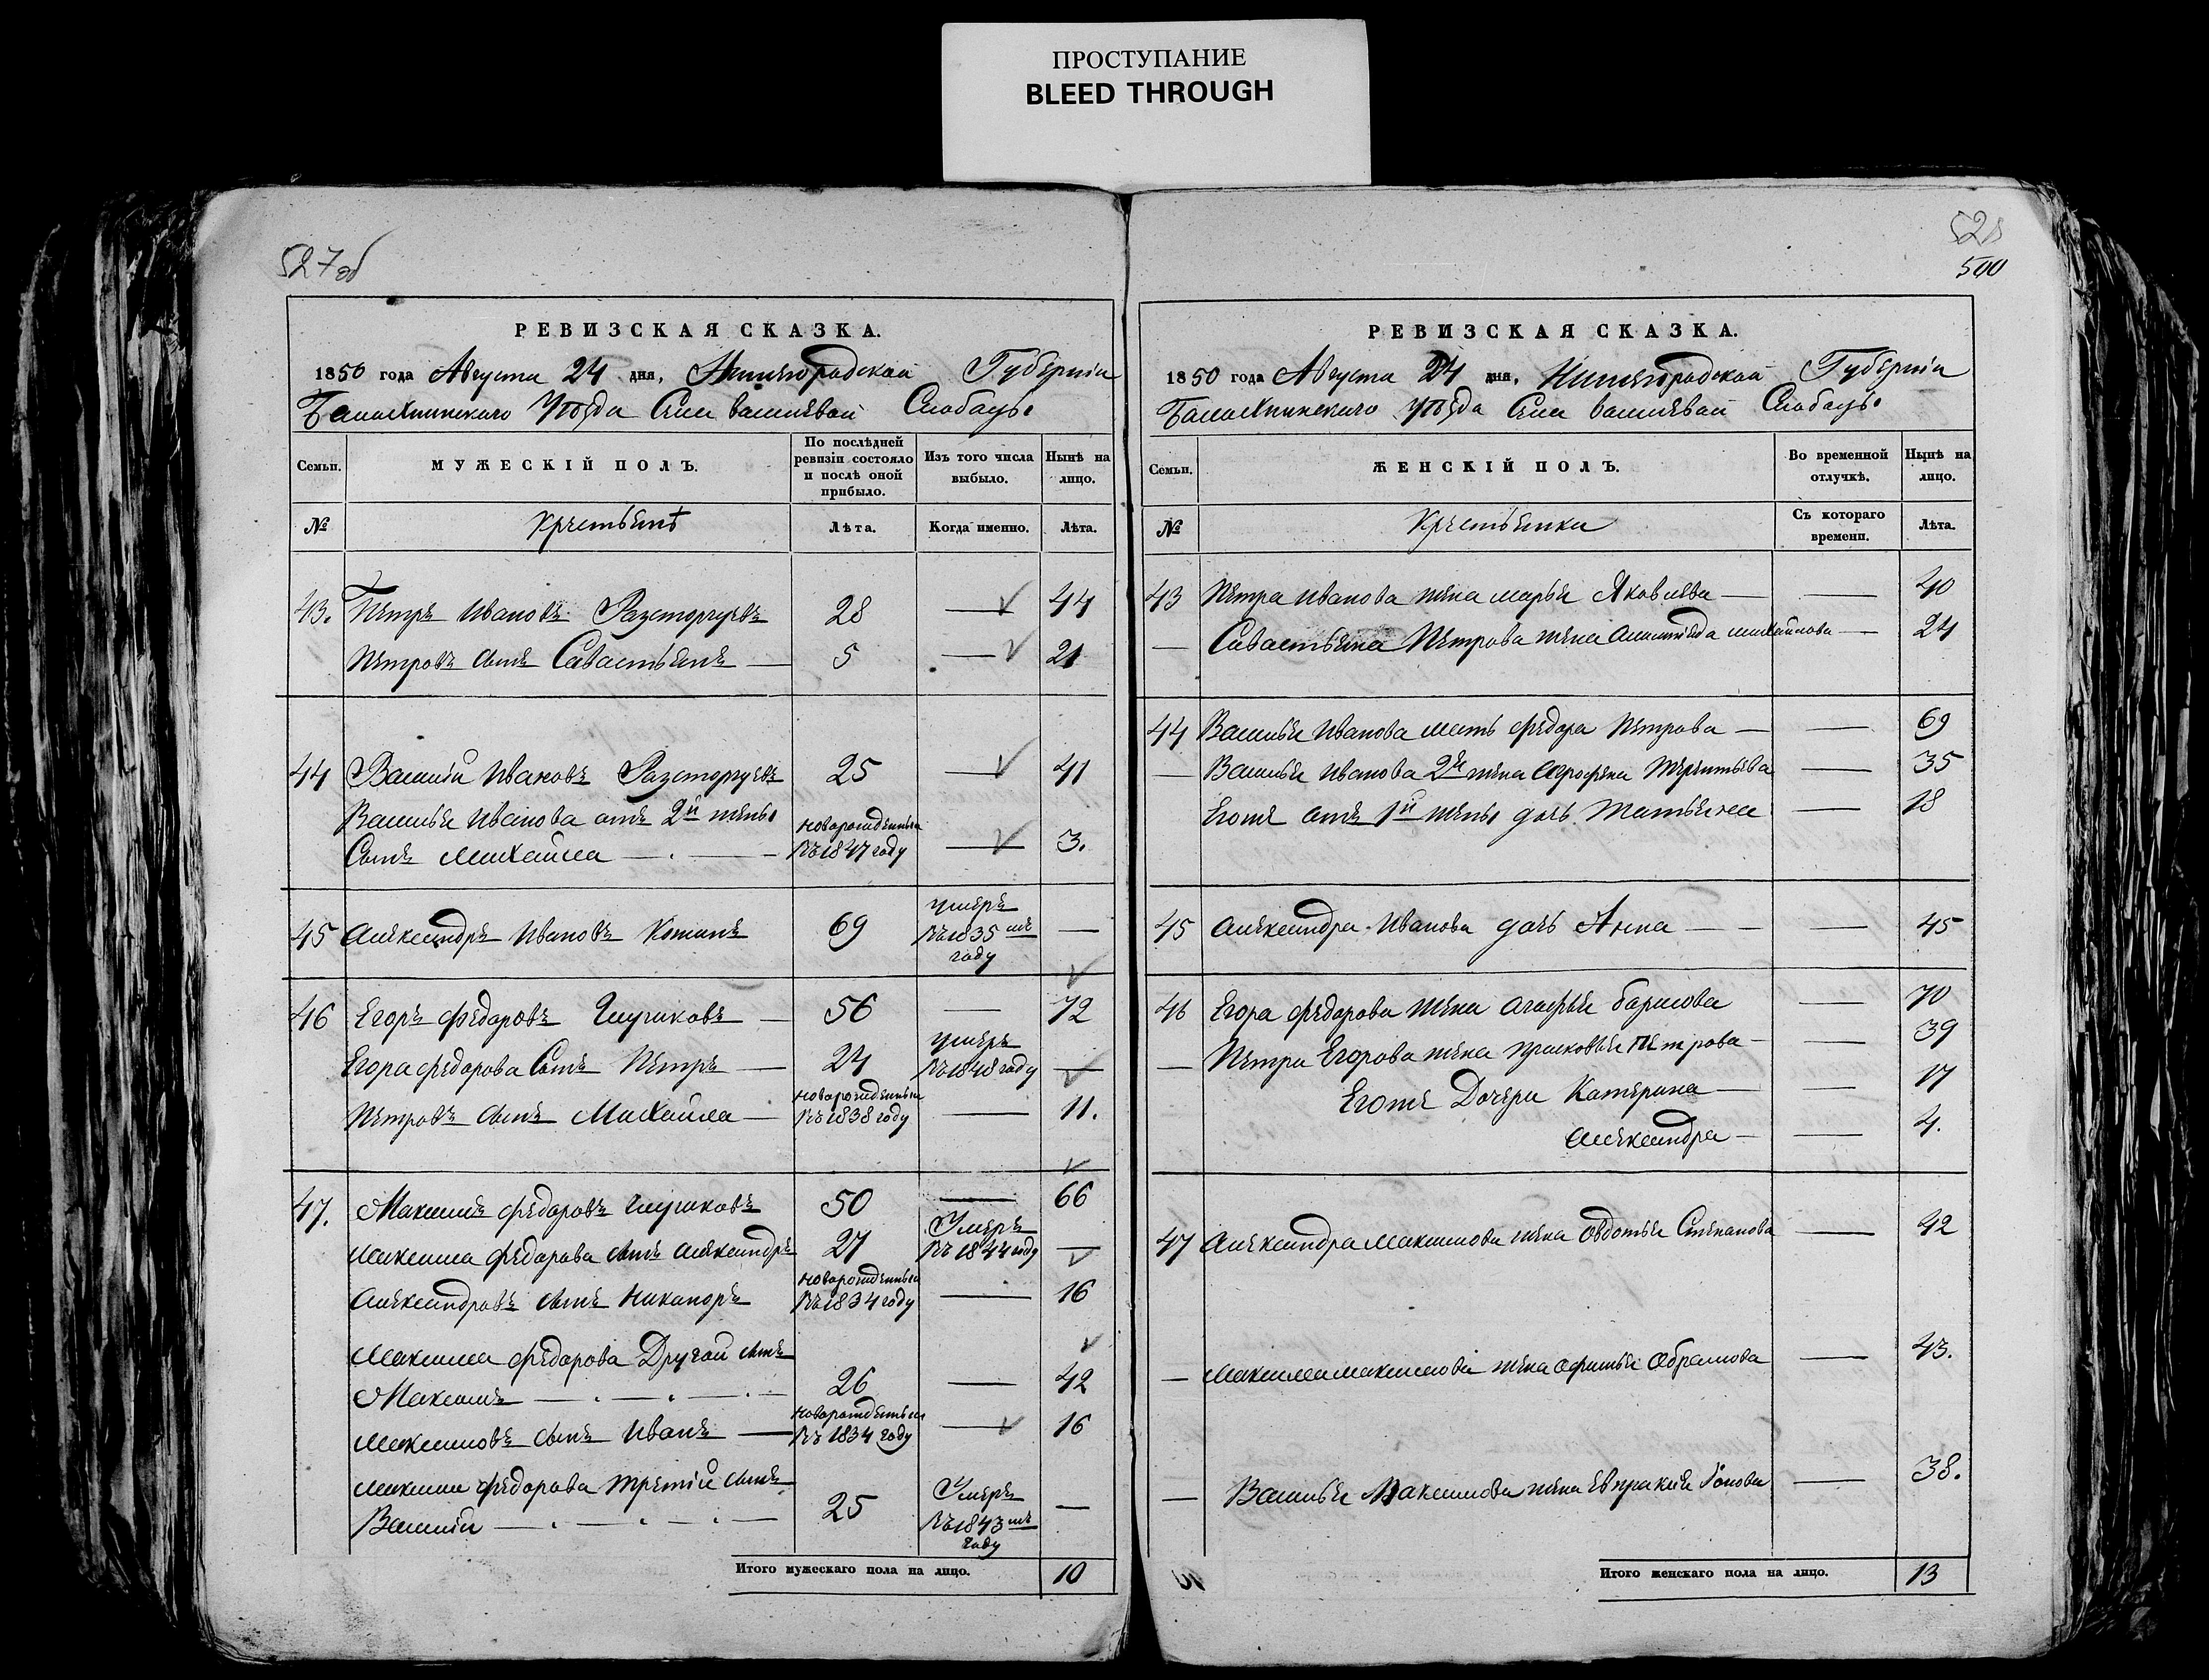 ПРОСТУПАНИЕ
BLEED THROUGH
527об
РЕВИЗСКАЯ СКАЗКА.
1850 года Августа 24 дня, Нижегородской Губерніи
Балахнинскаго Уѣзда Села Василевой Слободы
Семьи.
МУЖЕСКІЙ ПОЛЪ.
По послѣдней ревизіи состояло и послѣ оной прибыло.
Изъ того числа выбыло.
Нынѣ на лицо.
№
Крестьянѣ
Лѣта.
Когда именно.
Лѣта.
43. Петръ Ивановъ Разторгуевъ 28 — 44
Петровъ сынъ Савастьянъ — 5 — 21
44 Василій Ивановъ Разторгуевъ 25 — 41
Василья Иванова отъ 2й жены
Сынъ Михайла — новорожденный въ 1847 году — 3.
45 Александръ Ивановъ 69 умеръ въ 1835мъ году —
46 Егоръ Федоровъ Глушковъ — 56 — 72
Егора Федорова Сынъ Петръ — 24 умеръ въ 1848 году —
Петровъ сынъ Михайла — новорожденный въ 1838 году — 11.
47. Максимъ Федоровъ Глушковъ 50 — 66
Максима Федорова сынъ Александръ 27 Умеръ въ 1844 году —
Александровъ сынъ Никаноръ новорожденный въ 1834 году — 16
Максима Федорова Другой сынъ
Максимъ — 26 — 42
Максимовъ сынъ Иванъ — новорожденный въ 1834 году — 16
Максима Федорова третій сынъ
Василій — 25 Умеръ въ 1843мъ году —
Итого мужескаго пола на лицо. 10
528
500
РЕВИЗСКАЯ СКАЗКА.
1850 года Августа 24 дня, Нижегородской Губерніи
Балахнинскаго Уѣзда Села Василевой Слободы
Семьи.
ЖЕНСКІЙ ПОЛЪ.
Во временной отлучкѣ.
Нынѣ на лицо.
№
Крестьянки
Съ котораго времени.
Лѣта.
43 Петра Иванова жена Марья Яковлева — — 40
— Савастьяна Петрова жена Михайлова — 24
44 Василья Иванова мать Федора Петрова — — 69
— Василья Иванова 2я жена Аграфена Терентьева — 35
Егоже отъ 1й жены дочь Татьяна — 18
45 Александра Иванова дочь Анна — — 45
46 Егора Федорова жена Агафья Борисова — 70
— Петра Егорова жена Прасковья Петрова — — 39
Егоже Дочери Катерина — — 17
Александра — — 4.
47 Александра Максимова жена Овдотья Степанова — 42
— Максима Максимова жена Офимья Обрамова — 43.
— Василья Максимова жена — 38.
Итого женскаго пола на лицо. 13